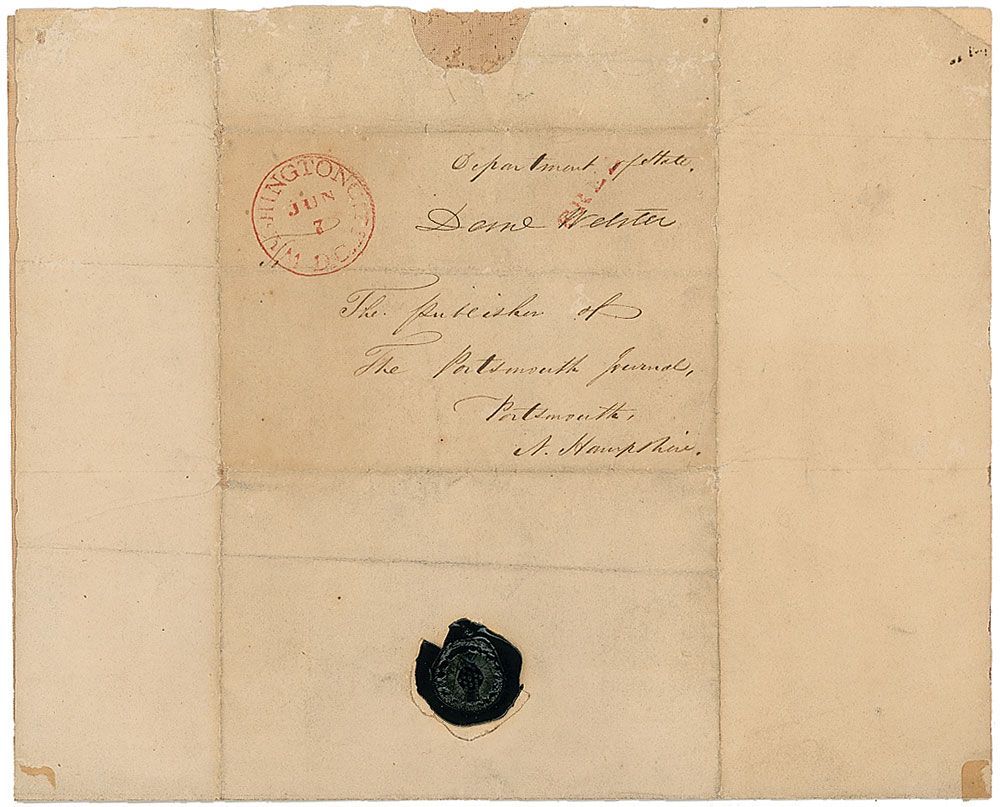 WASHINGTON CITY
JUN
7
D.C.
Department of State.
FREE
Danl Webster
The publisher of
The Portsmouth Journal,
Portsmouth,
N. Hampshire.